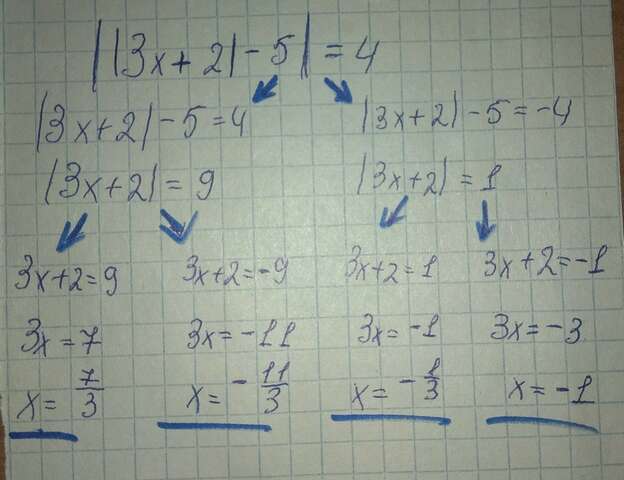 ||3x+2|-5|=4
|3x+2|-5=4 |3x+2|-5=-4
|3x+2|=9 |3x+2|=1
3x+2=9 3x+2=-9 3x+2=1 3x+2=-1
3x=7 3x=-11 3x=-1 3x=-3
x=7/3 x=-11/3 x=-1/3 x=-1